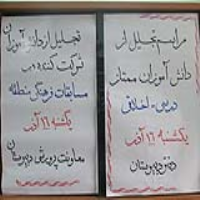 مراسم تجلیل از
دانش آموزان ممتاز
درسی - اخلاقی
یکشنبه ۱۶ آذر
دفتر دبیرستان
تجلیل از دانش آموزان
شرکت کننده در
مسابقات فرهنگی منطقه
یکشنبه ۱۶ آذر
معاونت پرورشی دبیرستان